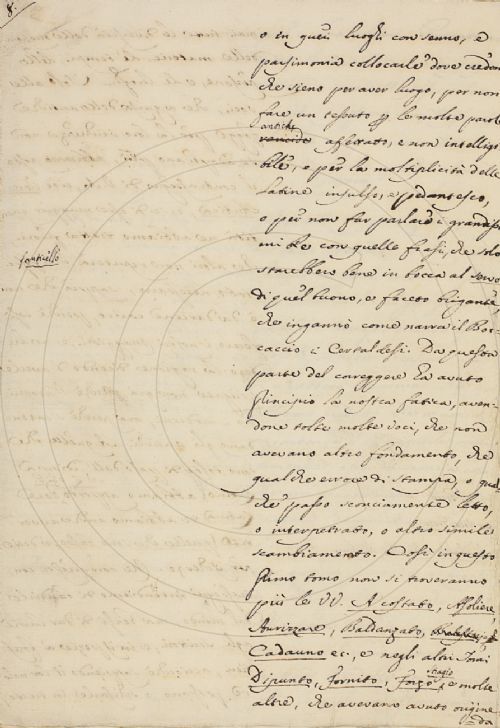 8.
o in quei luoghi con senno, e
parsimonia collocarle dove credon
che sieno per aver luogo, per non
fare un tessuto p le molte parole
antiche
rancide affettato, e non intelligi-
bile, e per la moltiplicità delle
latine insulso, e pedantesco,
o per non far parlare i grandis-
mi Re con quelle frasi, che solo
starebbero bene in bocca al servo
fanticello
di quel buono, e faceto brigante,
che ingannò come narra il Boc-
caccio i Certaldesi. Da questa
parte del correggere ha avuto
principio la nostra fatica, aven-
done tolte molte voci, che non
avevano altro fondamento, che
qualche errore di stampa, o qual
che passo sconciamente letto,
o interpetrato, o altro simile
scambiamento. Così in questo
primo tomo non si troveranno
più le VV. Accostato, Assoliere,
Aurizzare, Baldanzato,
Cadauno ec., e negli altri
Dipunto, Fornito, Forzo, e molte
altre, che avevano avuto origine
da